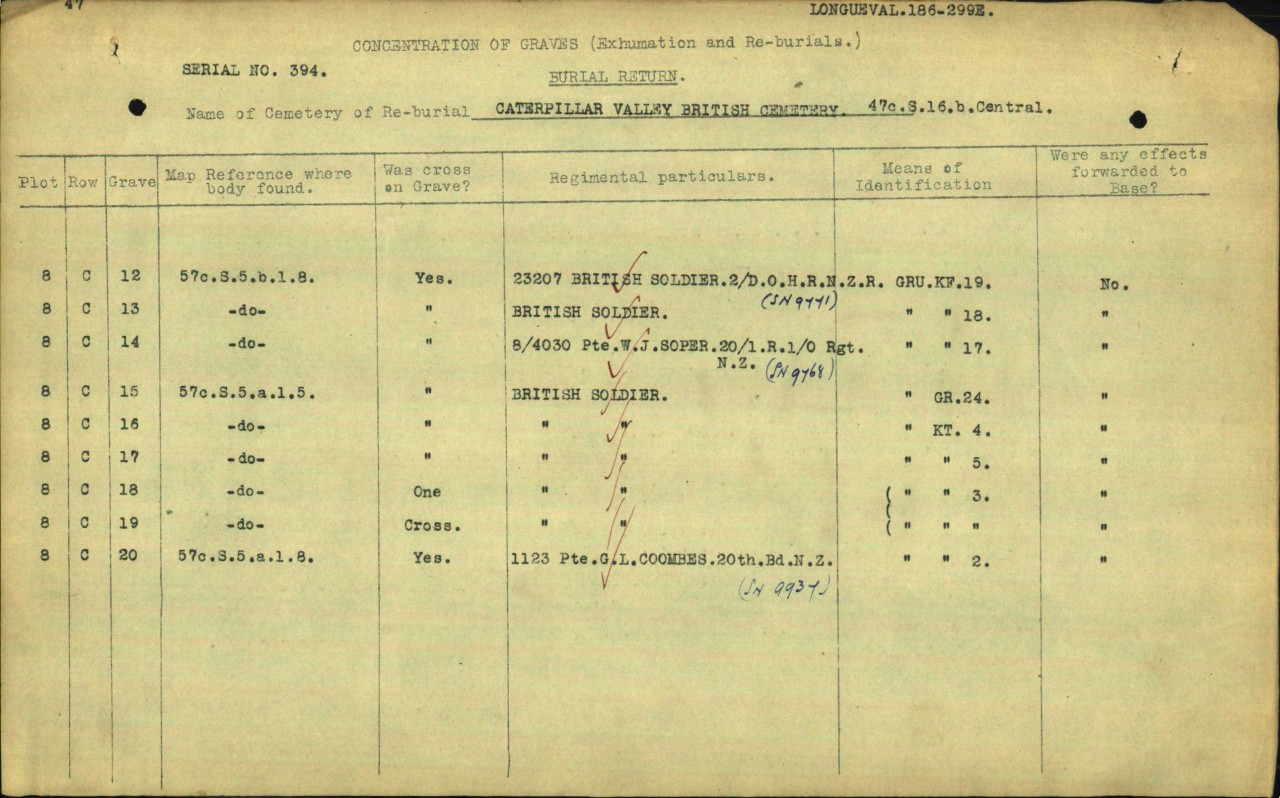 47
LONGUEVAL.186-299E.
CONCENTRATION OF GRAVES (Exhumation and Re-burials.)
SERIAL NO. 394.
BURIAL RETURN.
Name of Cemetery of Re-burial CATERPILLAR VALLEY BRITISH CEMETERY. 47c.S.16.b.Central.
Plot Row Grave Map Reference where body found. Was cross on Grave? Regimental particulars. Means of Identification Were any effects forwarded to Base?
8 C 12 57c.S.5.b.1.8. Yes. 23207 BRITISH SOLDIER.2/D.O.H.R.N.Z.R. GRU.KF.19. No.
(SN 9771)
8 C 13 -do- " BRITISH SOLDIER. " " 18. "
8 C 14 -do- " 8/4030 Pte.W.J.SOPER.20/1.R.1/0 Rgt. " " 17. "
N.Z. (SN 9768)
8 C 15 57c.S.5.a.1.5. " BRITISH SOLDIER. " GR.24. "
8 C 16 -do- " " " " KT. 4. "
8 C 17 -do- " " " " " 5. "
8 C 18 -do- One " " ( " " 3. "
8 C 19 -do- Cross. " " ( " " " "
8 C 20 57c.S.5.a.1.8. Yes. 1123 Pte.G.L.COOMBES.20th.Bd.N.Z. " " 2. "
(SN 9937)